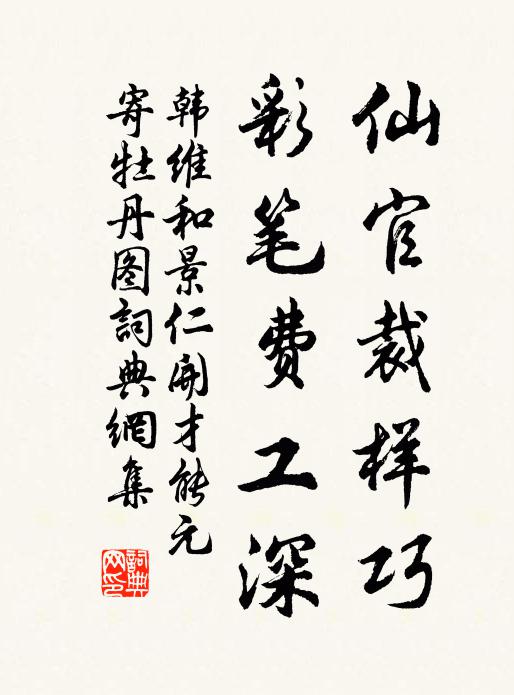 仙官裁样巧
彩笔费工深
韩维和景仁开才能元
寄牡丹图詞典網集
詞典网印